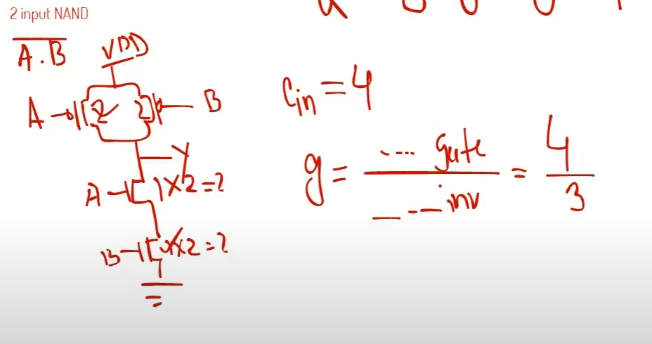 2 input NAND
A.B
VDD
A 2 2 B
Y
A 1x2=2
B 1x2=2
Cin=4
g= ---- gate / ---- inv = 4/3